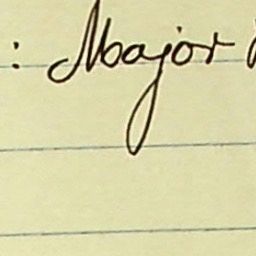 : Major